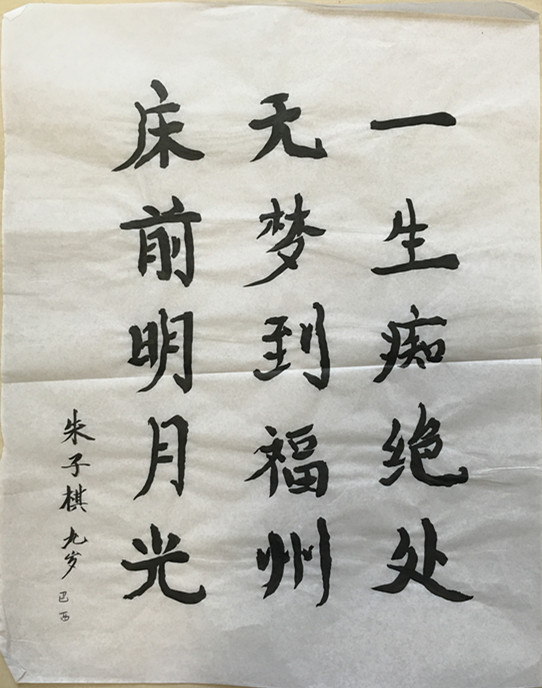 一生痴绝处
无梦到福州
床前明月光
朱子棋 九岁 巴西